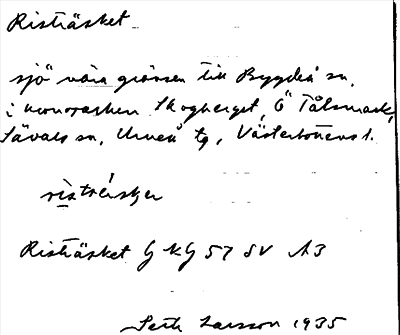 Risträsket
sjö nära gränsen till Bygdeå sn,
i kronoparken Skogberget, Ö Tålsmark,
Sävars sn, Umeå tg, Västerbottens l.
ristrẹsker
Risträsket G KG 57 SV A3
Seth Larsson 1935